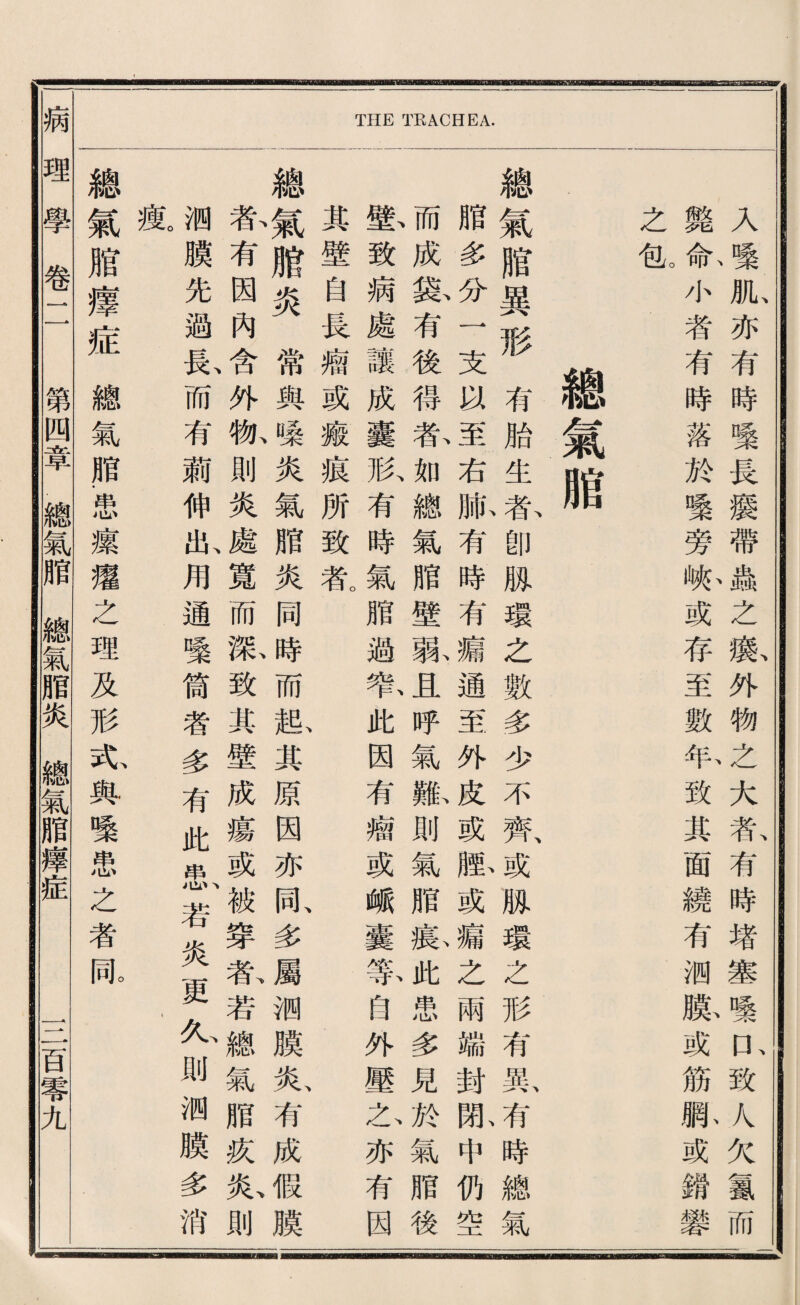 THE TRACHEA.
入嗓肌、亦有時嗓長癭帶蟲之癭、外物之大者、有時堵塞嗓口、致人欠氱而
斃命、小者有時落於嗓旁峽、或存至數年、致其面繞有泗膜、或筋網、或鏛礬
之包。
總氣䏓
總氣䏓異形　有胎生者、卽䏰環之數多少不齊、或䏰環之形有異、有時總氣
䏓多分一支以至右肺、有時有㾫通至外皮或脛、或㾫之兩端封閉、中仍空
而成袋、有後得者、如總氣䏓壁弱、且呼氣難、則氣䏓㾗、此患多見於氣䏓後
壁、致病處讓成囊形、有時氣䏓過窄、此因有瘤或衇囊等、自外壓之、亦有因
其壁自長瘤或瘢痕所致者。
總氣䏓炎　常與嗓炎氣䏓炎同時而起、其原因亦同、多屬泗膜炎、有成假膜
者、有因內含外物、則炎處寬而深、致其壁成瘍或被穿者、若總氣䏓疢炎、則
泗膜先過長、而有莿伸出、用通嗓筒者多有此患、若炎更久、則泗膜多消
瘦。
總氣䏓癴症　總氣䏓患瘰癯之理及形式、與嗓患之者同。
病理學　卷二　第四章　總氣䏓　總氣䏓炎　總氣䏓癴症　三百零九